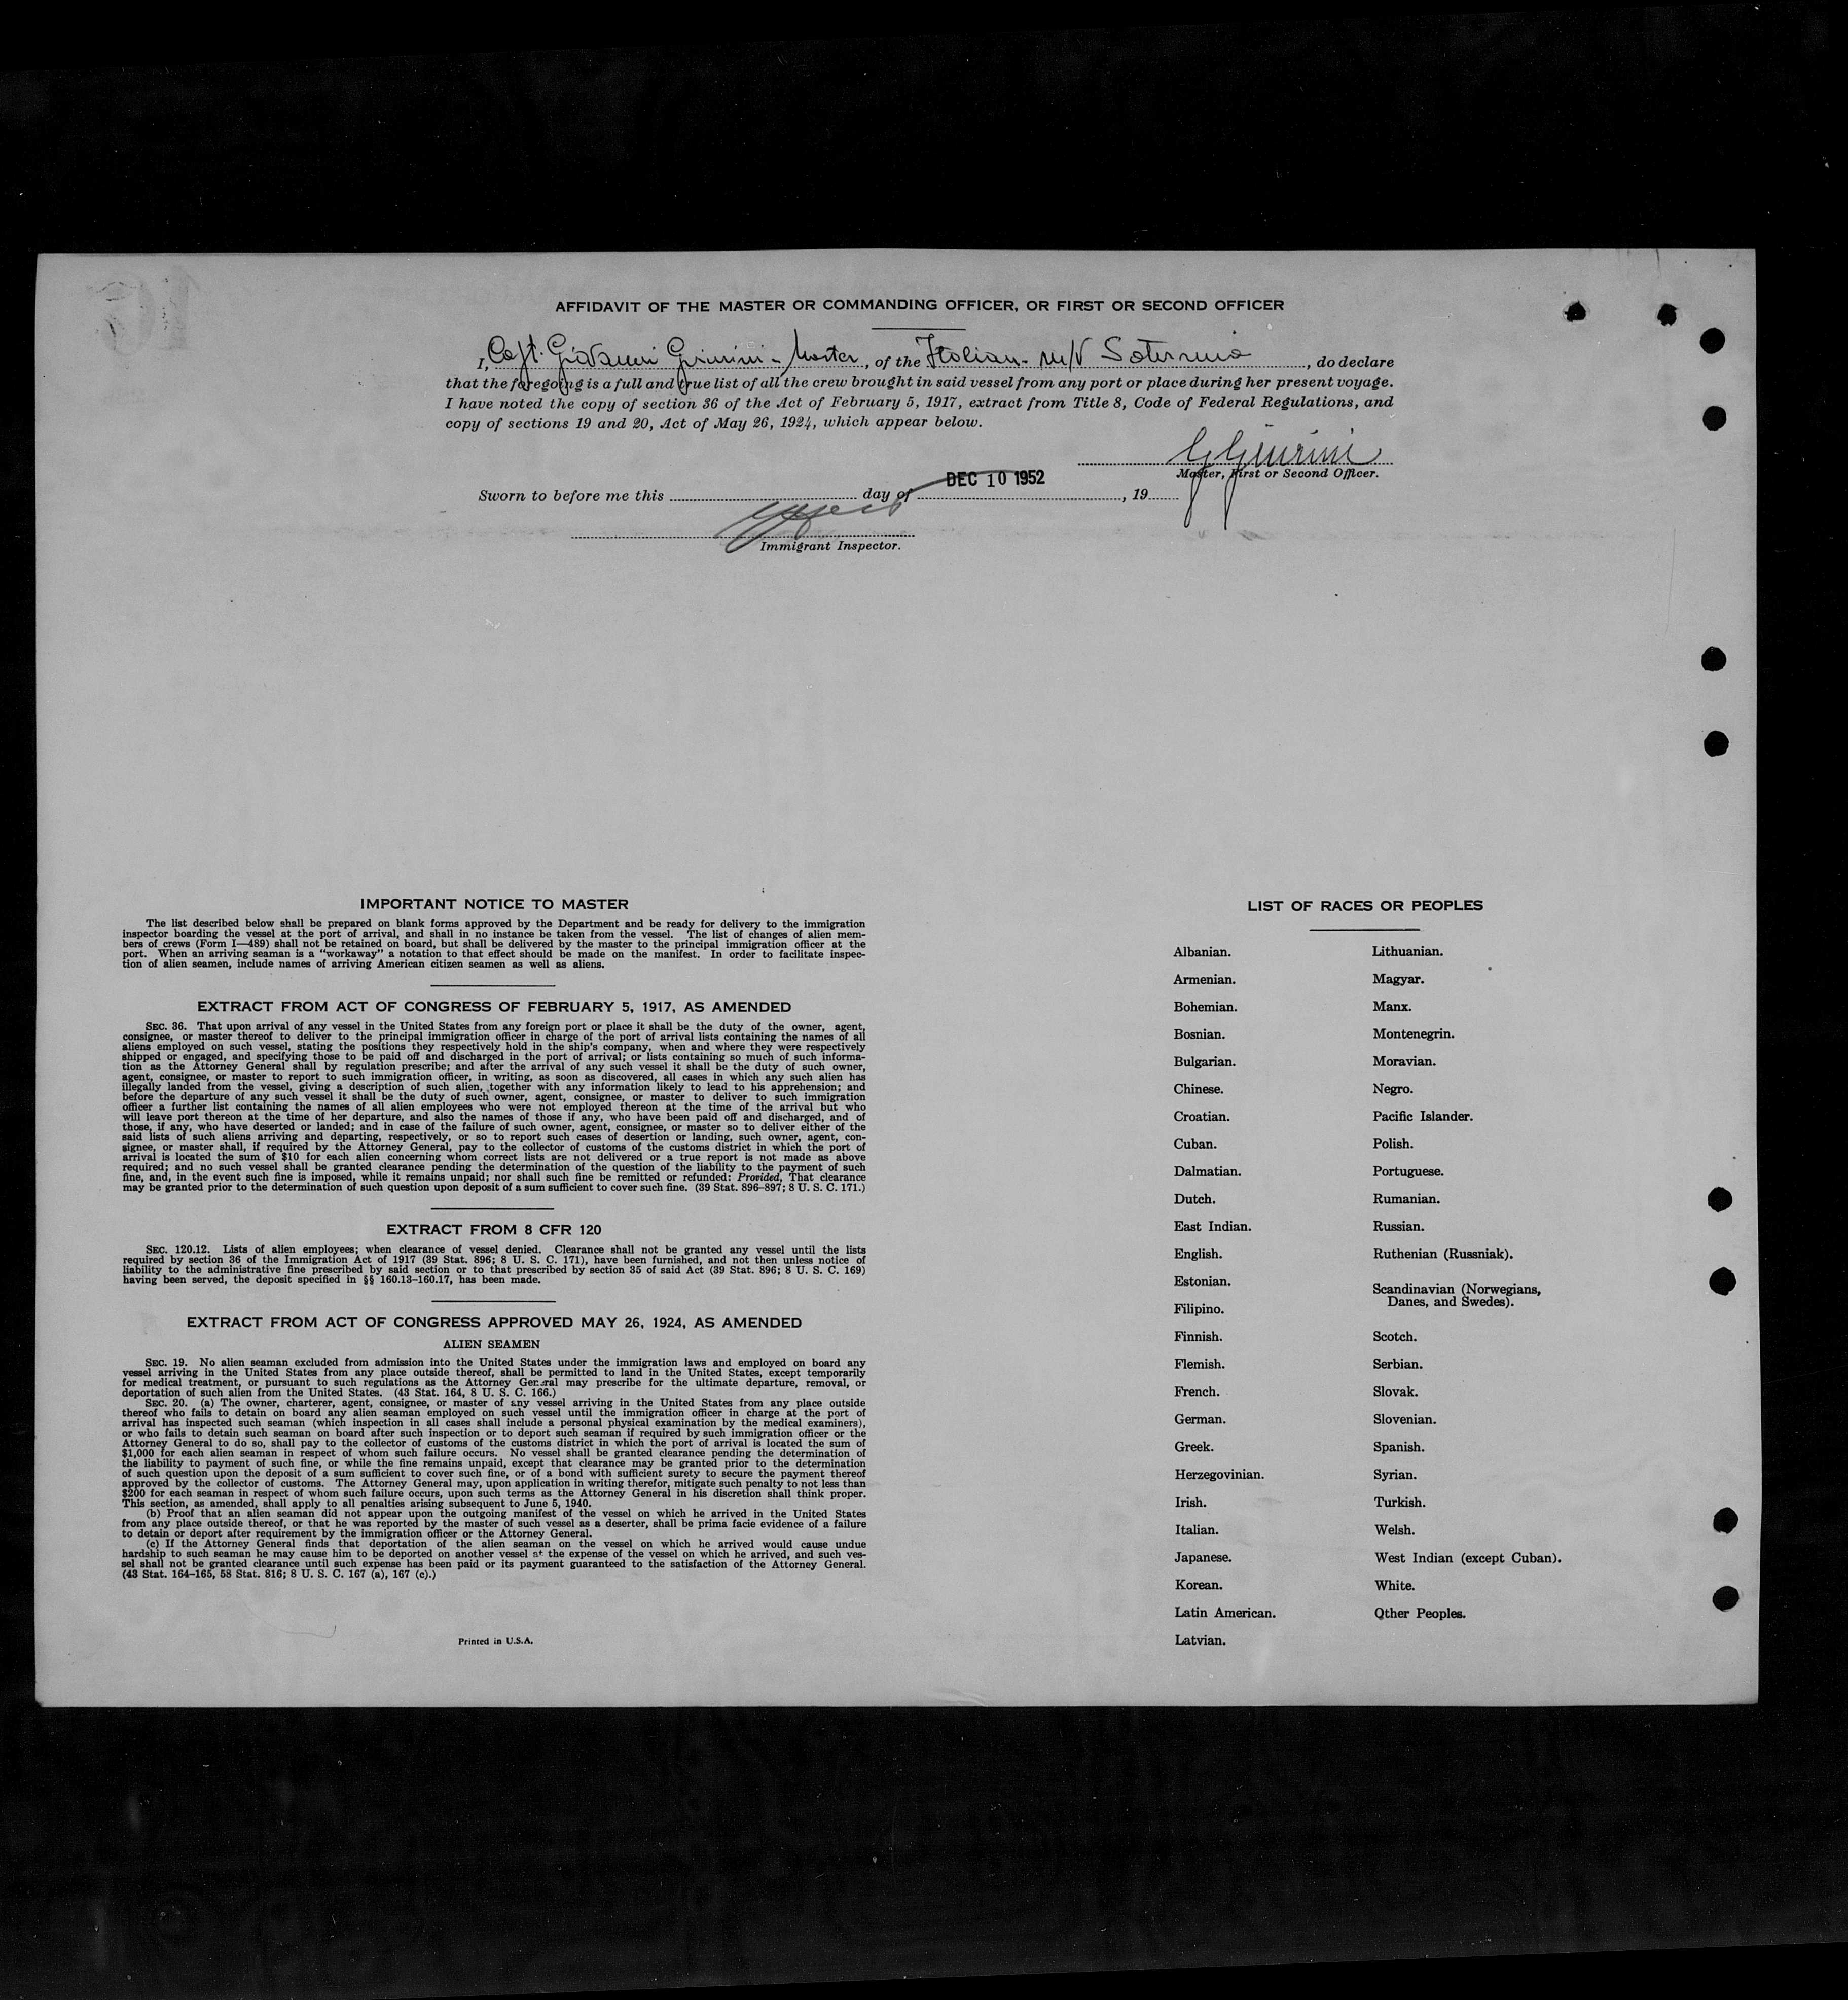 AFFIDAVIT OF THE MASTER OR COMMANDING OFFICER, OR FIRST OR SECOND OFFICER
I, Capt. Giovanni Giurini - Master, of the Italian - m/V Saturnia, do declare
that the foregoing is a full and true list of all the crew brought in said vessel from any port or place during her present voyage.
I have noted the copy of section 36 of the Act of February 5, 1917, extract from Title 8, Code of Federal Regulations, and
copy of sections 19 and 20, Act of May 26, 1924, which appear below.
G Giurini
Master, First or Second Officer.
DEC 10 1952
Sworn to before me this day of , 19
Immigrant Inspector.
IMPORTANT NOTICE TO MASTER
The list described below shall be prepared on blank forms approved by the Department and be ready for delivery to the immigration
inspector boarding the vessel at the port of arrival, and shall in no instance be taken from the vessel. The list of changes of alien mem-
bers of crews (Form I—489) shall not be retained on board, but shall be delivered by the master to the principal immigration officer at the
port. When an arriving seaman is a "workaway" a notation to that effect should be made on the manifest. In order to facilitate inspec-
tion of alien seamen, include names of arriving American citizen seamen as well as aliens.
EXTRACT FROM ACT OF CONGRESS OF FEBRUARY 5, 1917, AS AMENDED
SEC. 36. That upon arrival of any vessel in the United States from any foreign port or place it shall be the duty of the owner, agent,
consignee, or master thereof to deliver to the principal immigration officer in charge of the port of arrival lists containing the names of all
aliens employed on such vessel, stating the positions they respectively hold in the ship's company, when and where they were respectively
shipped or engaged, and specifying those to be paid off and discharged in the port of arrival; or lists containing so much of such informa-
tion as the Attorney General shall by regulation prescribe; and after the arrival of any such vessel it shall be the duty of such owner,
agent, consignee, or master to report to such immigration officer, in writing, as soon as discovered, all cases in which any such alien has
illegally landed from the vessel, giving a description of such alien, together with any information likely to lead to his apprehension; and
before the departure of any such vessel it shall be the duty of such owner, agent, consignee, or master to deliver to such immigration
officer a further list containing the names of all alien employees who were not employed thereon at the time of the arrival but who
will leave port thereon at the time of her departure, and also the names of those if any, who have been paid off and discharged, and of
those, if any, who have deserted or landed; and in case of the failure of such owner, agent, consignee, or master so to deliver either of the
said lists of such aliens arriving and departing, respectively, or so to report such cases of desertion or landing, such owner, agent, con-
signee, or master shall, if required by the Attorney General, pay to the collector of customs of the customs district in which the port of
arrival is located the sum of $10 for each alien concerning whom correct lists are not delivered or a true report is not made as above
required; and no such vessel shall be granted clearance pending the determination of the question of the liability to the payment of such
fine, and, in the event such fine is imposed, while it remains unpaid; nor shall such fine be remitted or refunded: Provided, That clearance
may be granted prior to the determination of such question upon deposit of a sum sufficient to cover such fine. (39 Stat. 896–897; 8 U. S. C. 171.)
EXTRACT FROM 8 CFR 120
SEC. 120.12. Lists of alien employees; when clearance of vessel denied. Clearance shall not be granted any vessel until the lists
required by section 36 of the Immigration Act of 1917 (39 Stat. 896; 8 U. S. C. 171), have been furnished, and not then unless notice of
liability to the administrative fine prescribed by said section or to that prescribed by section 35 of said Act (39 Stat. 896; 8 U. S. C. 169)
having been served, the deposit specified in §§ 160.13–160.17, has been made.
EXTRACT FROM ACT OF CONGRESS APPROVED MAY 26, 1924, AS AMENDED
ALIEN SEAMEN
SEC. 19. No alien seaman excluded from admission into the United States under the immigration laws and employed on board any
vessel arriving in the United States from any place outside thereof, shall be permitted to land in the United States, except temporarily
for medical treatment, or pursuant to such regulations as the Attorney General may prescribe for the ultimate departure, removal, or
deportation of such alien from the United States. (43 Stat. 164, 8 U. S. C. 166.)
SEC. 20. (a) The owner, charterer, agent, consignee, or master of any vessel arriving in the United States from any place outside
thereof who fails to detain on board any alien seaman employed on such vessel until the immigration officer in charge at the port of
arrival has inspected such seaman (which inspection in all cases shall include a personal physical examination by the medical examiners),
or who fails to detain such seaman on board after such inspection or to deport such seaman if required by such immigration officer or the
Attorney General to do so, shall pay to the collector of customs of the customs district in which the port of arrival is located the sum of
$1,000 for each alien seaman in respect of whom such failure occurs. No vessel shall be granted clearance pending the determination of
the liability to payment of such fine, or while the fine remains unpaid, except that clearance may be granted prior to the determination
of such question upon the deposit of a sum sufficient to cover such fine, or of a bond with sufficient surety to secure the payment thereof
approved by the collector of customs. The Attorney General may, upon application in writing therefor, mitigate such penalty to not less than
$200 for each seaman in respect of whom such failure occurs, upon such terms as the Attorney General in his discretion shall think proper.
This section, as amended, shall apply to all penalties arising subsequent to June 5, 1940.
(b) Proof that an alien seaman did not appear upon the outgoing manifest of the vessel on which he arrived in the United States
from any place outside thereof, or that he was reported by the master of such vessel as a deserter, shall be prima facie evidence of a failure
to detain or deport after requirement by the immigration officer or the Attorney General.
(c) If the Attorney General finds that deportation of the alien seaman on the vessel on which he arrived would cause undue
hardship to such seaman he may cause him to be deported on another vessel at the expense of the vessel on which he arrived, and such ves-
sel shall not be granted clearance until such expense has been paid or its payment guaranteed to the satisfaction of the Attorney General.
(43 Stat. 164–165, 58 Stat. 816; 8 U. S. C. 167 (a), 167 (c).)
Printed in U.S.A.
LIST OF RACES OR PEOPLES
Albanian.
Armenian.
Bohemian.
Bosnian.
Bulgarian.
Chinese.
Croatian.
Cuban.
Dalmatian.
Dutch.
East Indian.
English.
Estonian.
Filipino.
Finnish.
Flemish.
French.
German.
Greek.
Herzegovinian.
Irish.
Italian.
Japanese.
Korean.
Latin American.
Latvian.
Lithuanian.
Magyar.
Manx.
Montenegrin.
Moravian.
Negro.
Pacific Islander.
Polish.
Portuguese.
Rumanian.
Russian.
Ruthenian (Russniak).
Scandinavian (Norwegians,
Danes, and Swedes).
Scotch.
Serbian.
Slovak.
Slovenian.
Spanish.
Syrian.
Turkish.
Welsh.
West Indian (except Cuban).
White.
Other Peoples.